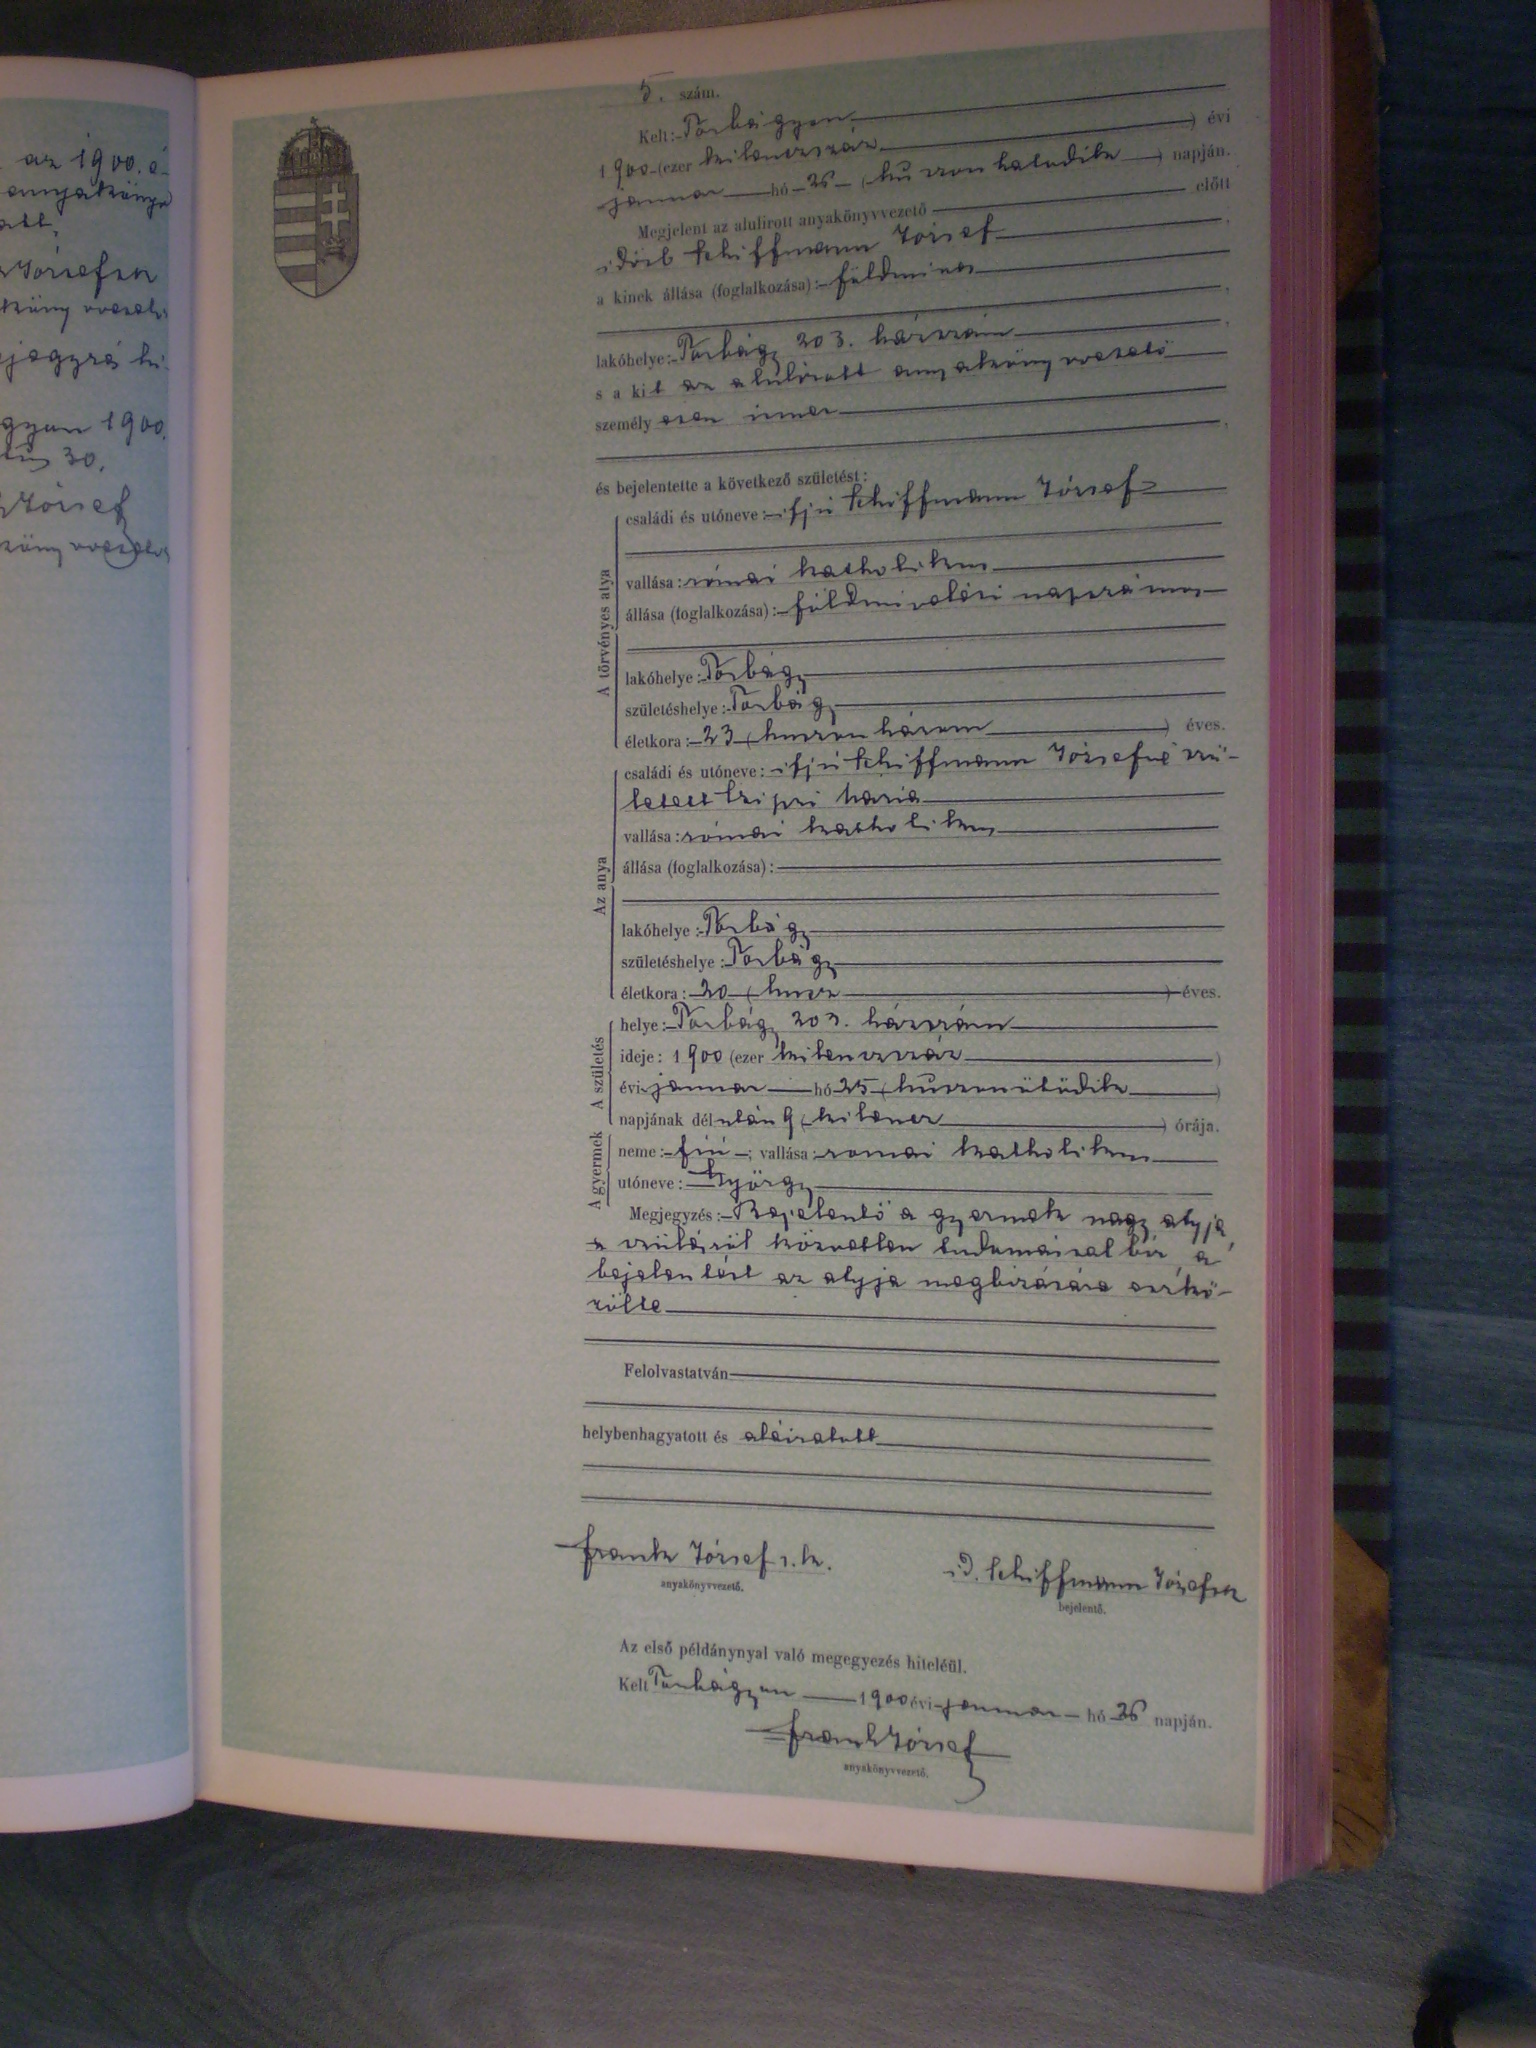 az 1900. é-
anyaköny
att,
Józsefsk
köny vvezető
ejegyzés hi-
gyon 1900.
tus 30.
József
köny vvezető
5. szám.
Kelt: Torbágyon
1900 (ezer kilenczszáz ) évi
január hó 26 (huszonhatodik ) napján.
Megjelent az alulirott anyakönyvvezető előtt
időb Schiffmann József ,
a kinek állása (foglalkozása): földmives
,
lakóhelye: Torbágy 203. házszám ,
s a kit az alulirott anyaköny vvezető
személy esen ismer
,
és bejelentette a következő születést:
A törvényes atya
családi és utóneve: ifjú Schiffmann József
vallása: római katholikus
állása (foglalkozása): földmivelési napszámos
lakóhelye: Torbágy
születéshelye: Torbágy
életkora: 23 (huszonhárom ) éves.
Az anya
családi és utóneve: ifjú Schiffmann Józsefné szü-
letett Szipri Mária
vallása: római katholikus
állása (foglalkozása):
lakóhelye: Torbágy
születéshelye: Torbágy
életkora: 20 (husz ) éves.
A születés
helye: Torbágy 203. házszám
ideje: 1900 (ezer kilenczszáz )
évi január hó 25 (huszonötödik )
napjának dél után 9 (kilencz ) órája.
A gyermek
neme: fiú ; vallása: romai katholikus
utóneve: György
Megjegyzés: Bejelentő a gyermek nagy atyja,
a szülésről közvetlen tudomással bír, a
bejelentést az atyja megbizására eszkö-
zölte
Felolvastatván
helybenhagyatott és aláiratott
Frank József s. k.
anyakönyvvezető.
id. Schiffmann József sk
bejelentő.
Az első példánynyal való megegyezés hiteléül.
Kelt Torbágyon 1900 évi január hó 26 napján.
Frank József
anyakönyvvezető.